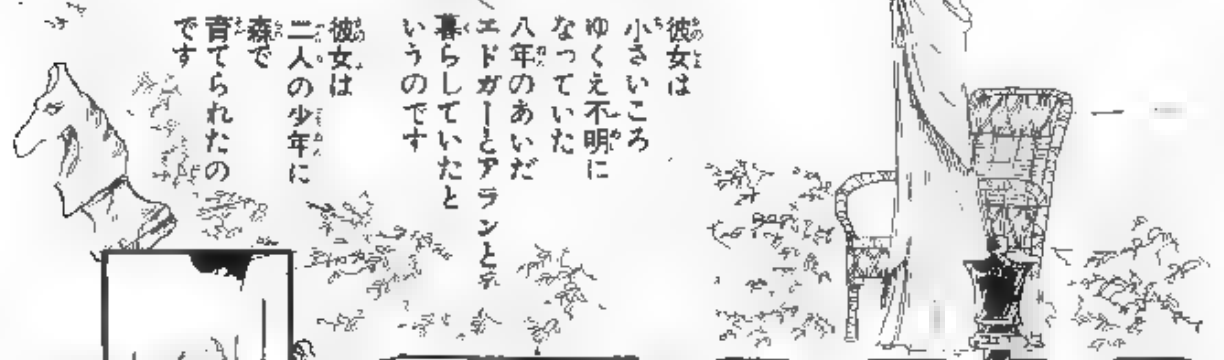 彼女は
小さいころ
ゆくえ不明に
なっていた
八年のあいだ
エドガーとアランと
暮らしていたと
いうのです
彼女は
二人の少年に
森で
育てられたの
です